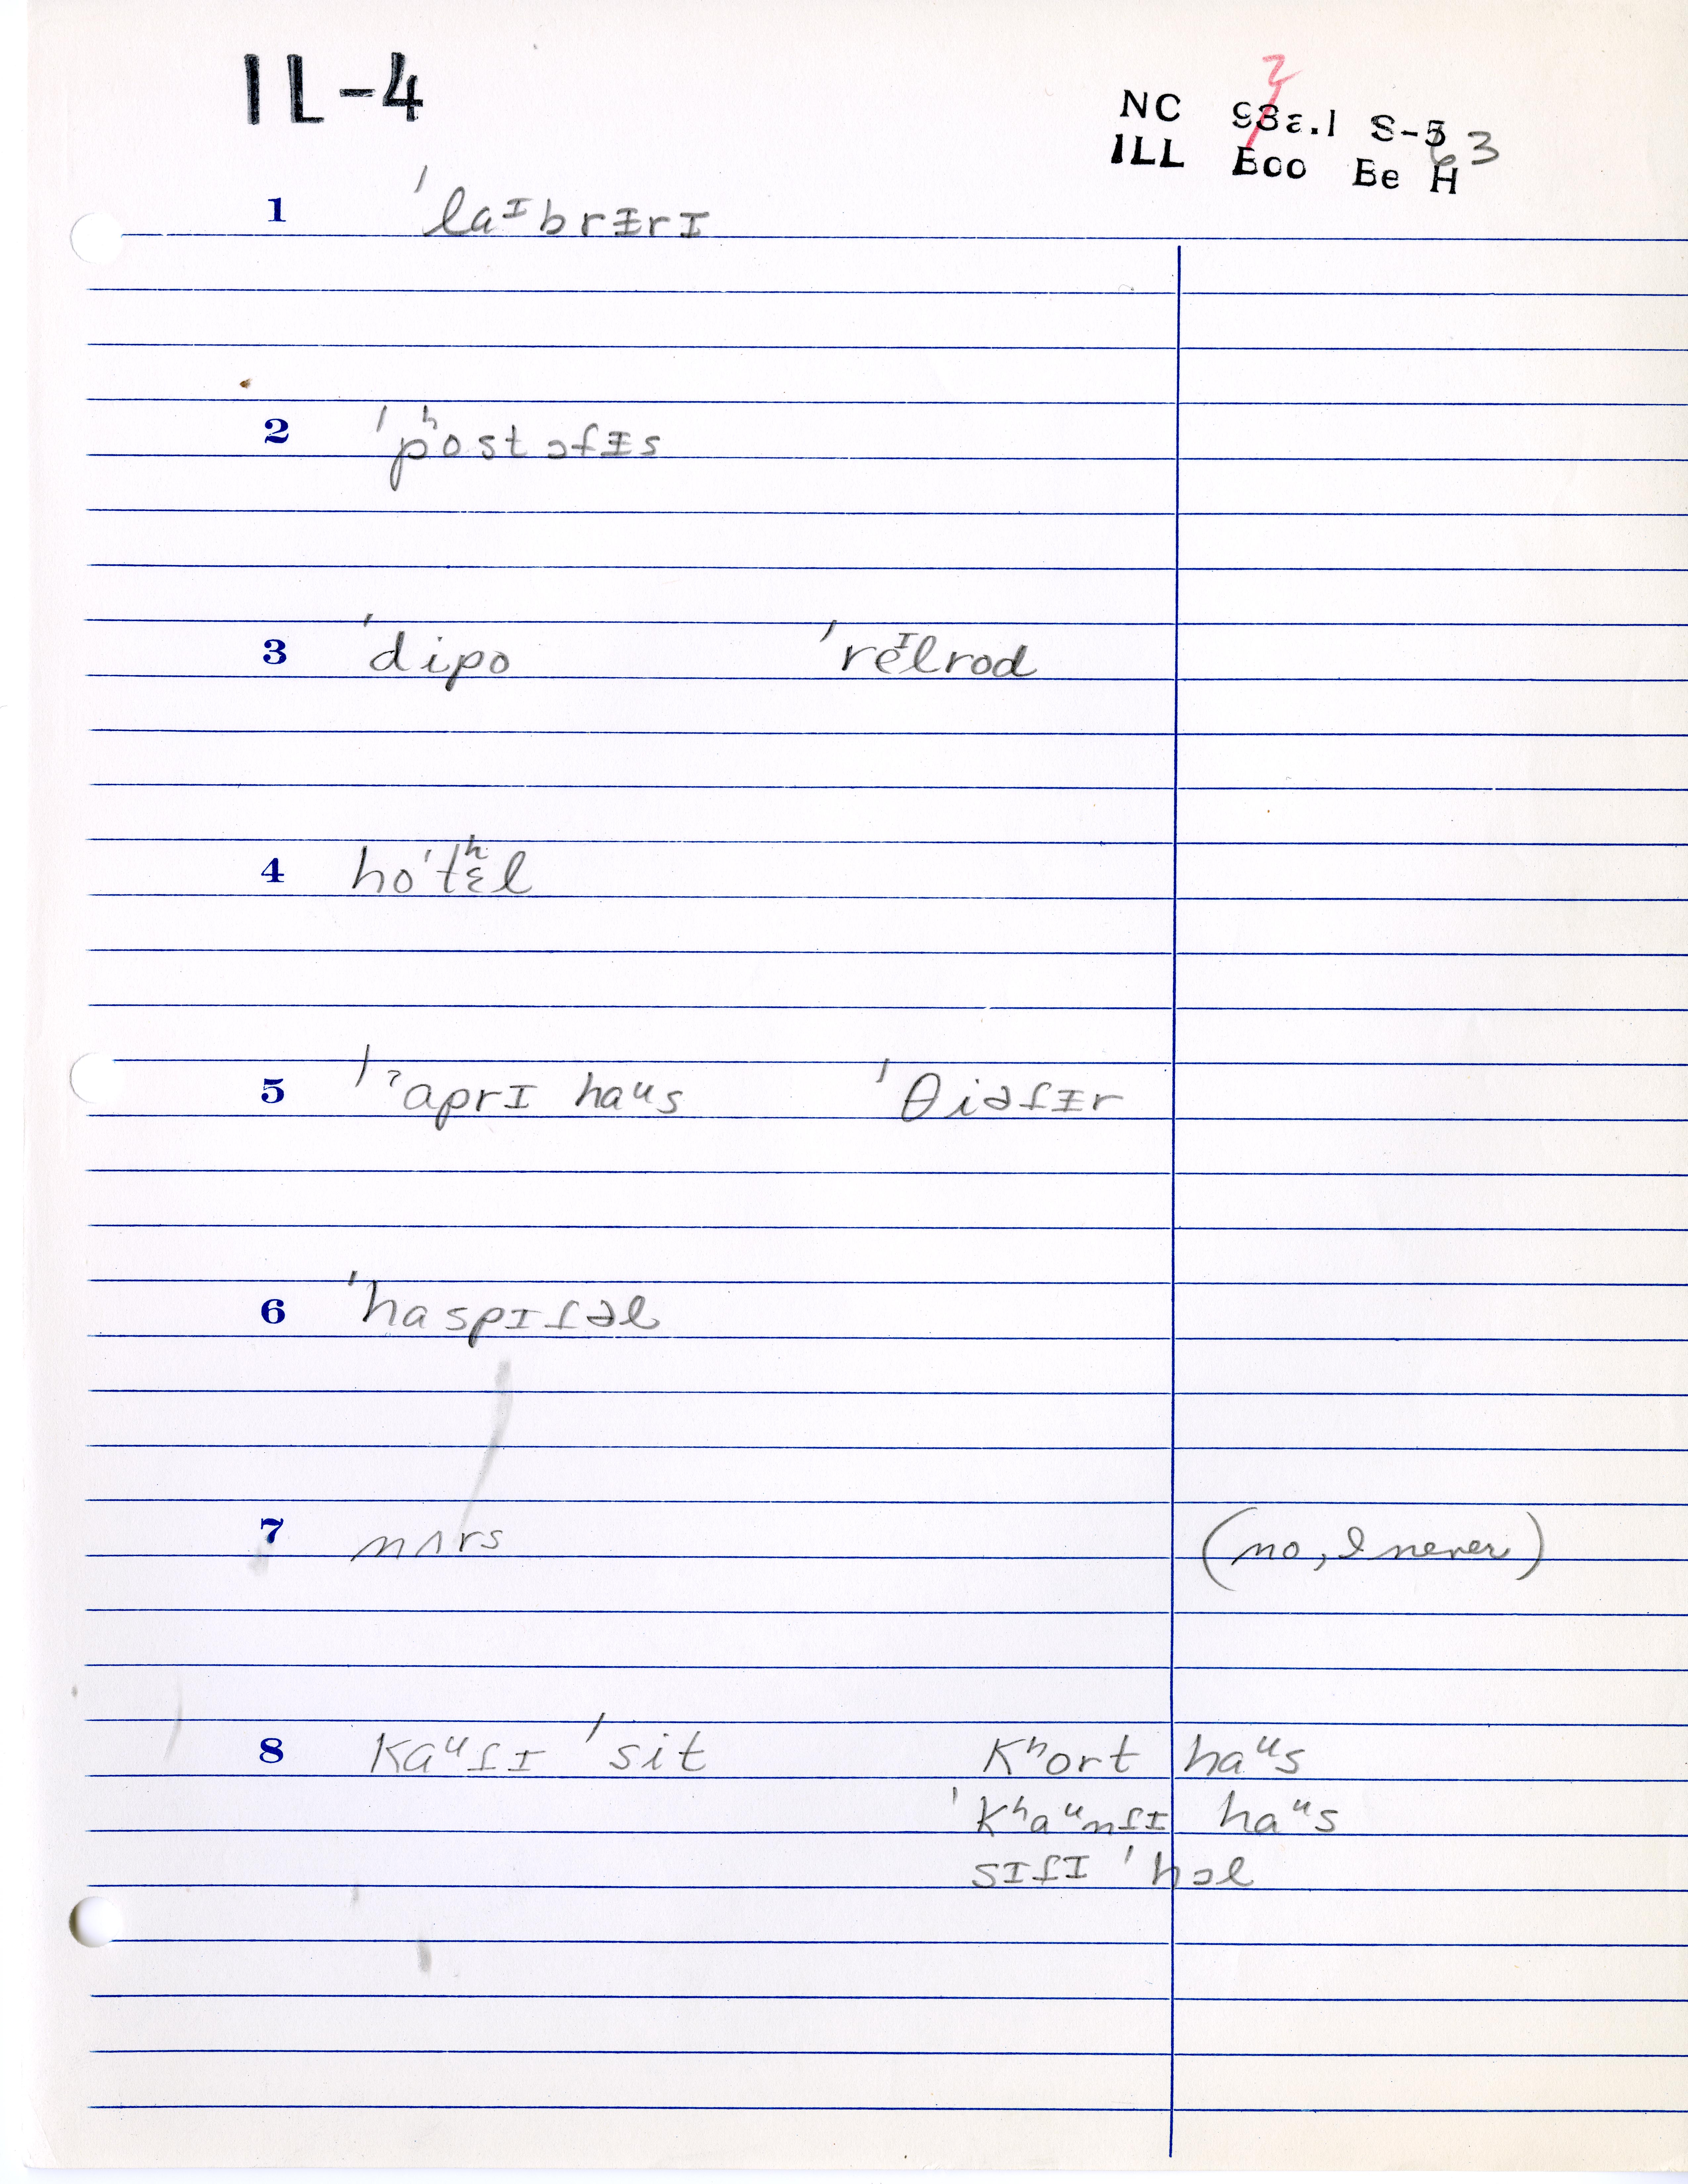 IL-4
NC 93ɛ.1 S-5 63
2
ILL Boo Be H
1 ˈlaᶦbrᵻrɪ
2 ˈpʰostɔfᵻs
3 ˈdipo ˈreᶦlrod
4 hoˈtʰɛl
5 ˈˀaprɪ haᵘs ˈθiəɾᵻr
6 ˈhaspɪɾəl
7 nʌrs (no, I never)
8 kaᵘɾɪ ˈsit kʰort haᵘs
ˈkʰaᵘnɾɪ haᵘs
sɪɾɪ ˈhɔl